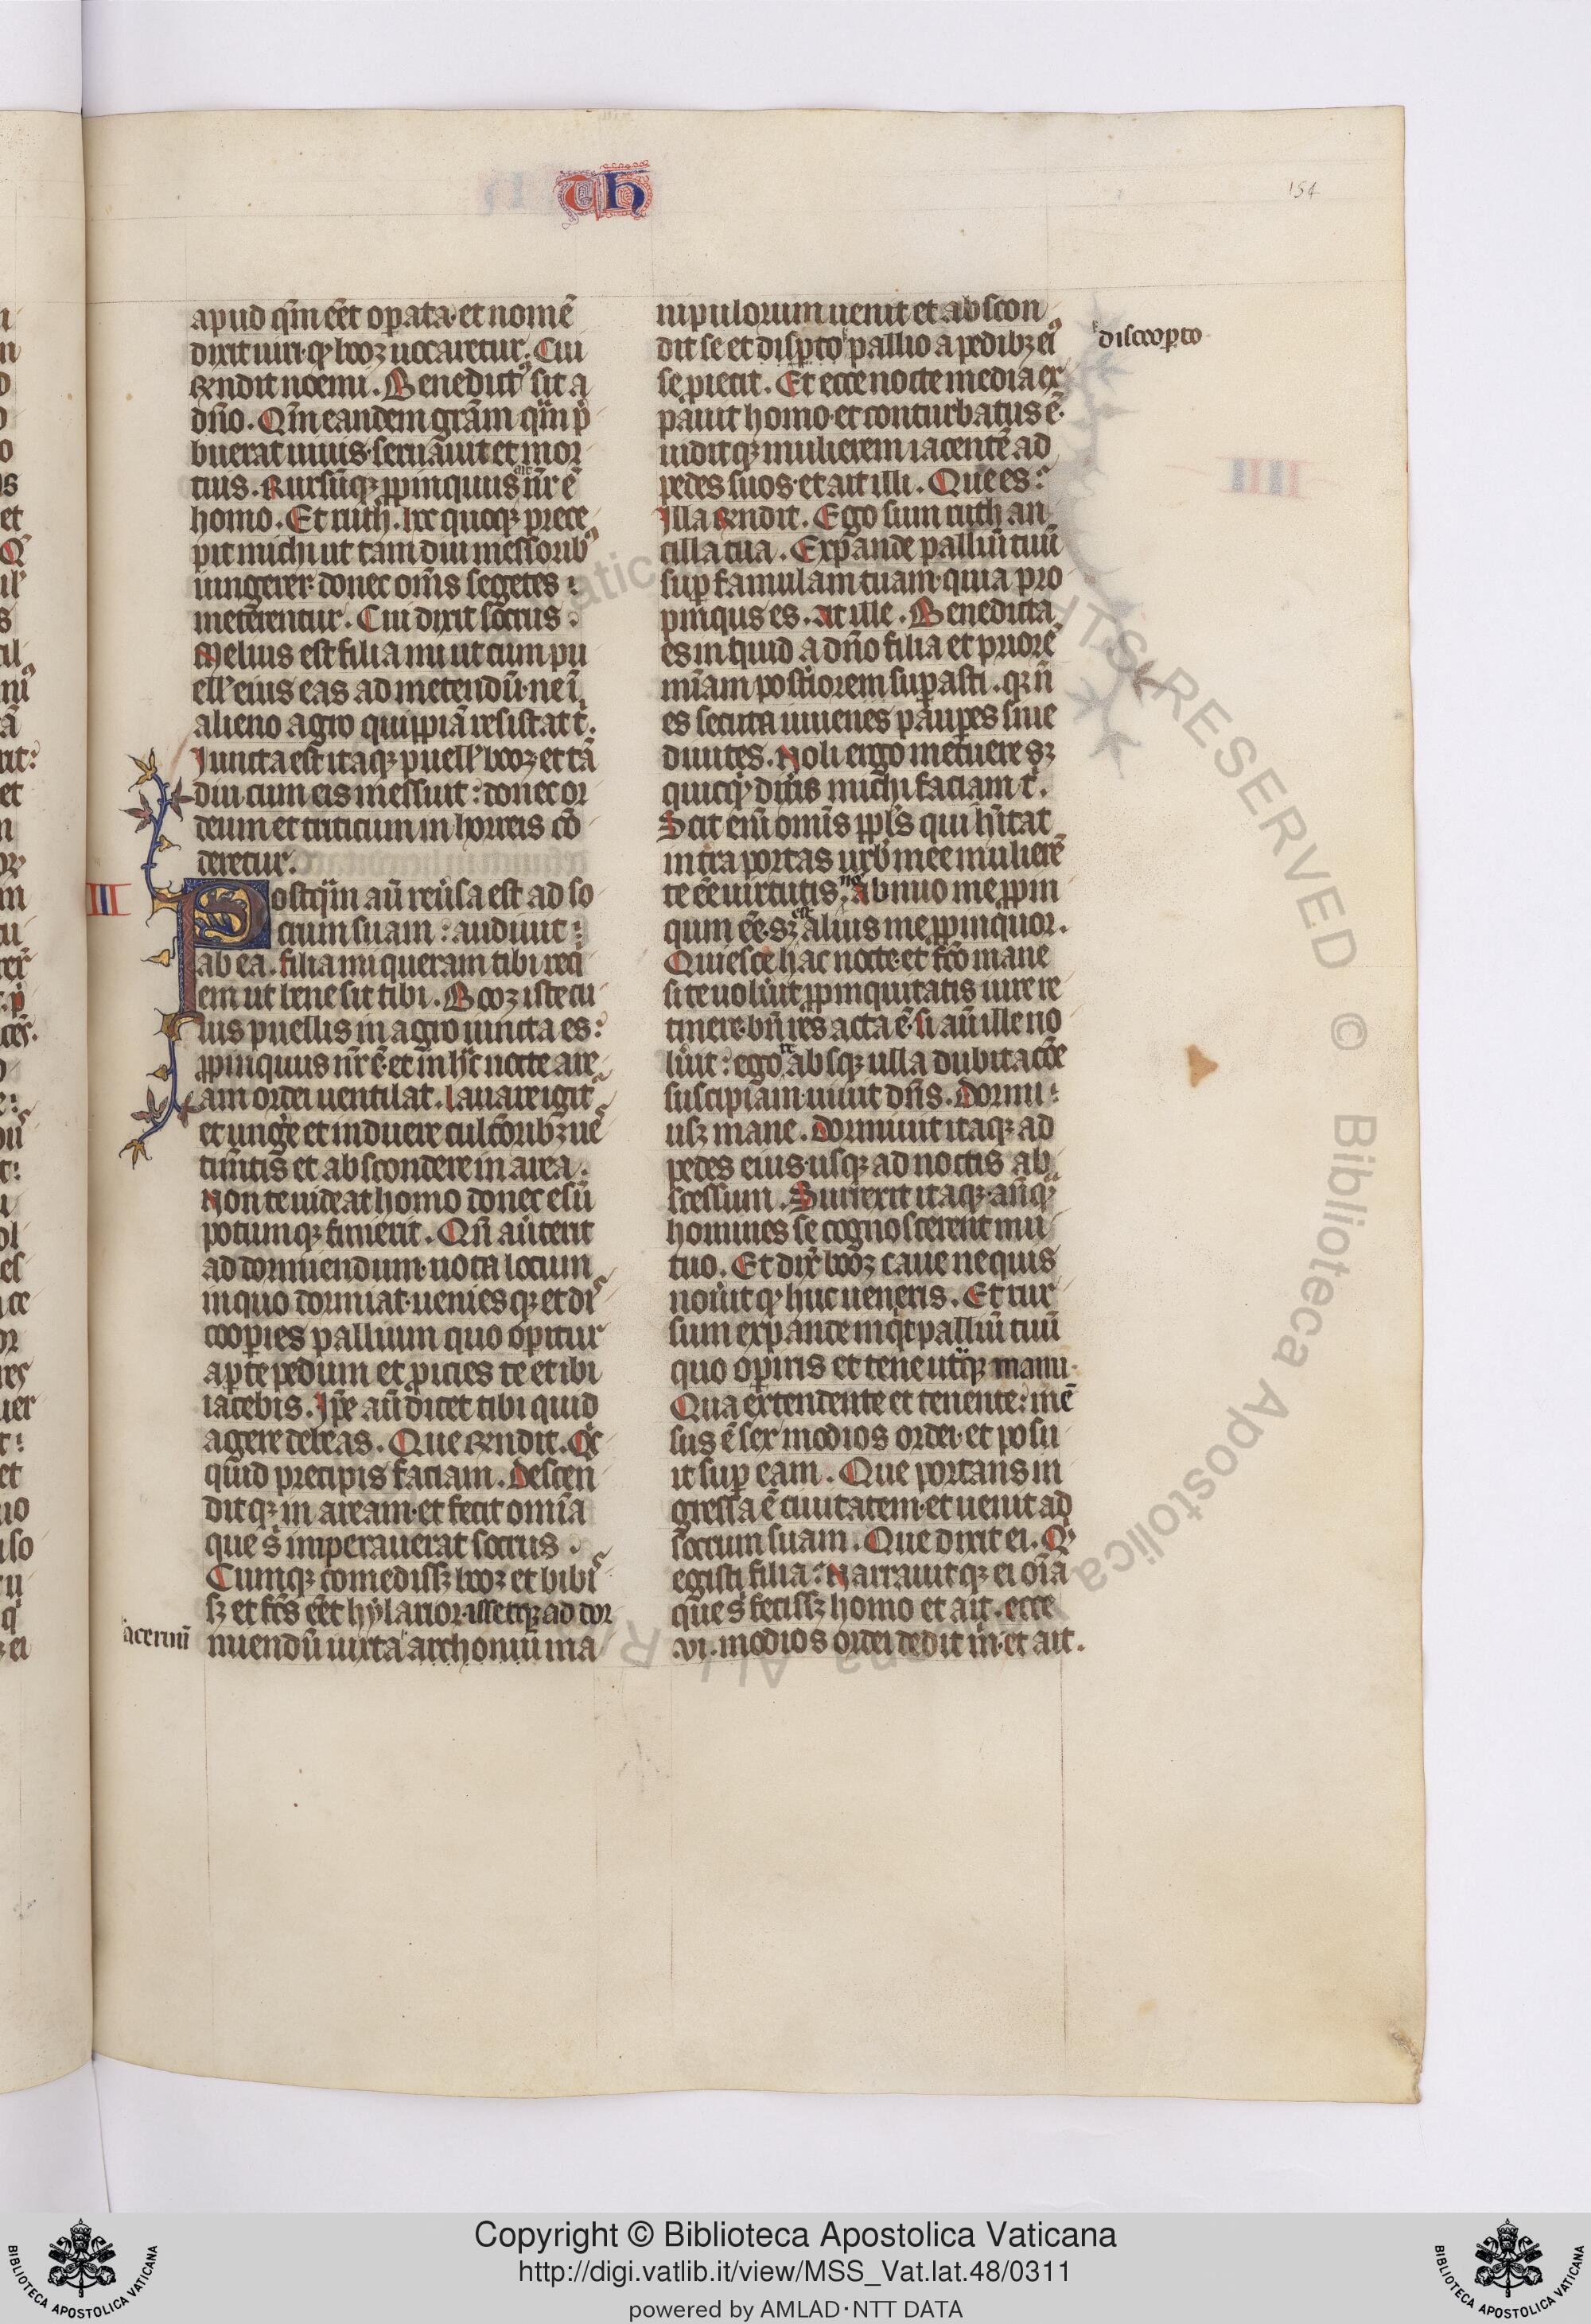 TH
154
apud qm̄ eēt oꝑata· et nomē
dixit uiri· ꝙ booz uocaretur. Cui
rn̄dit noemi. Benedictꝰ sit a
dn̄o. Qm̄ eandem grām quā p̄
buerat uiuis· seruauit et mor
tuis. Rursūqꝫ ꝓpinquus ait nr̄ ē
homo. Et ruth. hoc quoqꝫ prece
pit michi ut tam diu messoribꝰ
iungerer· donec om̄s segetes
meterentur. Cui dixit socrus.
Melius est filia mi ut cum pu
ell' eius eas ad metendū· ne ī
alieno agro quippiā resistat t̄.
Iuncta est itaqꝫ puell' booz et tā
diu cum eis messuit: donec or
deum et triticum in horreis cō
deretur.
III
Postqm̄ aū reūsa est ad so
crum suam: audiuit:
ab ea. filia mi queram tibi req̄
em ut bene sit tibi. Booz iste cu
ius puellis in agro iuncta es:
ꝓpinquus nr̄ ē· et in hac nocte are
am ordei uentilat. lauare igit᷑
et unge et induere cultioribꝫ ue
stim̄tis et abscondere in area.
Non te uideat homo donec esū
potumqꝫ finierit. Qn̄ aū ierit
ad dormiendum· nota locum
in quo dormiat· ueniesqꝫ et dis
cooꝑies pallium quo oꝑitur
a ꝑte pedum et ꝓicies te et ibi
iacebis. Ip̄e aū dicet tibi quid
agere debeas. Que rn̄dit. Qc
quid precipis faciam. Descen
ditqꝫ in aream· et fecit omīa
que s̄ imperauerat socrus.
Cumqꝫ comedissꝫ booz et bibis
sꝫ et fcs̄ eēt hylarior· issetqꝫ ad dor
miendū iuxta archoniū ma
aceruū
nipulorum uenit et abscon
dit se et disꝑto pallio a pedibꝫ eiꝰ
discooꝑto
se ꝓiecit. Et ecce nocte media ex
pauit homo· et conturbatus ē·
uiditqꝫ mulierem iacentē ad
pedes suos· et ait illi. Que es:
Illa rn̄dit. Ego sum ruth an
cilla tua. Expande palliū tuū
suꝑ famulam tuam· quia pro
pinqus es. At ille. Benedicta
es inquid a dn̄o filia et priorē
mīam posteriorem suꝑasti. qꝫ n̄
es secuta iuuenes pauꝑes siue
diuites. Noli ergo metuere sꝫ
quicqͥd dixis michi faciam t̄.
Scit enī omīs ppl's qui hītat
intra portas urb' mee mulierē
te eē uirtutis. nō Abnuo me ꝓpin
qum eē· sꝫ est alius me ꝓpinquor.
Quiesce hac nocte· et fc̄o mane
si te uolūit ꝓpinquitatis iure re
tinere· bn̄ res acta ē· si aū ille no
lūit: ego te absqꝫ ulla dubitacōe
suscipiam· uiuit dn̄s. Dormi
usqꝫ mane. Dormiuit itaqꝫ ad
pedes eius usqꝫ ad noctis ab
scessum. Surrexit itaqꝫ· anq̄ꝫ
homines se cognoscerent mu
tuo. Et dix̄ booz caue ne quis
nouīt ꝙ huc ueneris. Et rur
sum expande inq̄t palliū tuū
quo oꝑiris et tene ut͛qꝫ manu·
Qua extendente et tenente: mē
sus ē sex modios ordei· et posu
it suꝑ eam. Que portans in
gressa ē ciuitatem· et uenit ad
socrum suam. Que dixit ei. Qͥ
egisti filia: Narrauitqꝫ ei oīa
que s̄ fecissꝫ homo et ait. ecce
.vi. modios ordei dedit m̄· et ait.
Copyright © Biblioteca Apostolica Vaticana
http://digi.vatlib.it/view/MSS_Vat.lat.48/0311
powered by AMLAD·NTT DATA
BIBLIOTECA APOSTOLICA VATICANA
BIBLIOTECA APOSTOLICA VATICANA